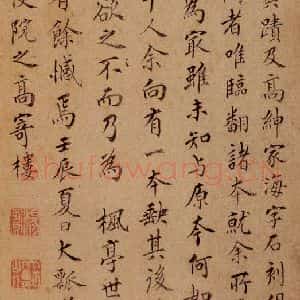 蹟及高紳家海字石刻
者唯臨翻諸本就余所
為最雖未知与原本何如
人余向有一本缺其後
欲之不而乃為 楓亭世
餘憾焉壬辰夏日大瓢
院之高寄樓